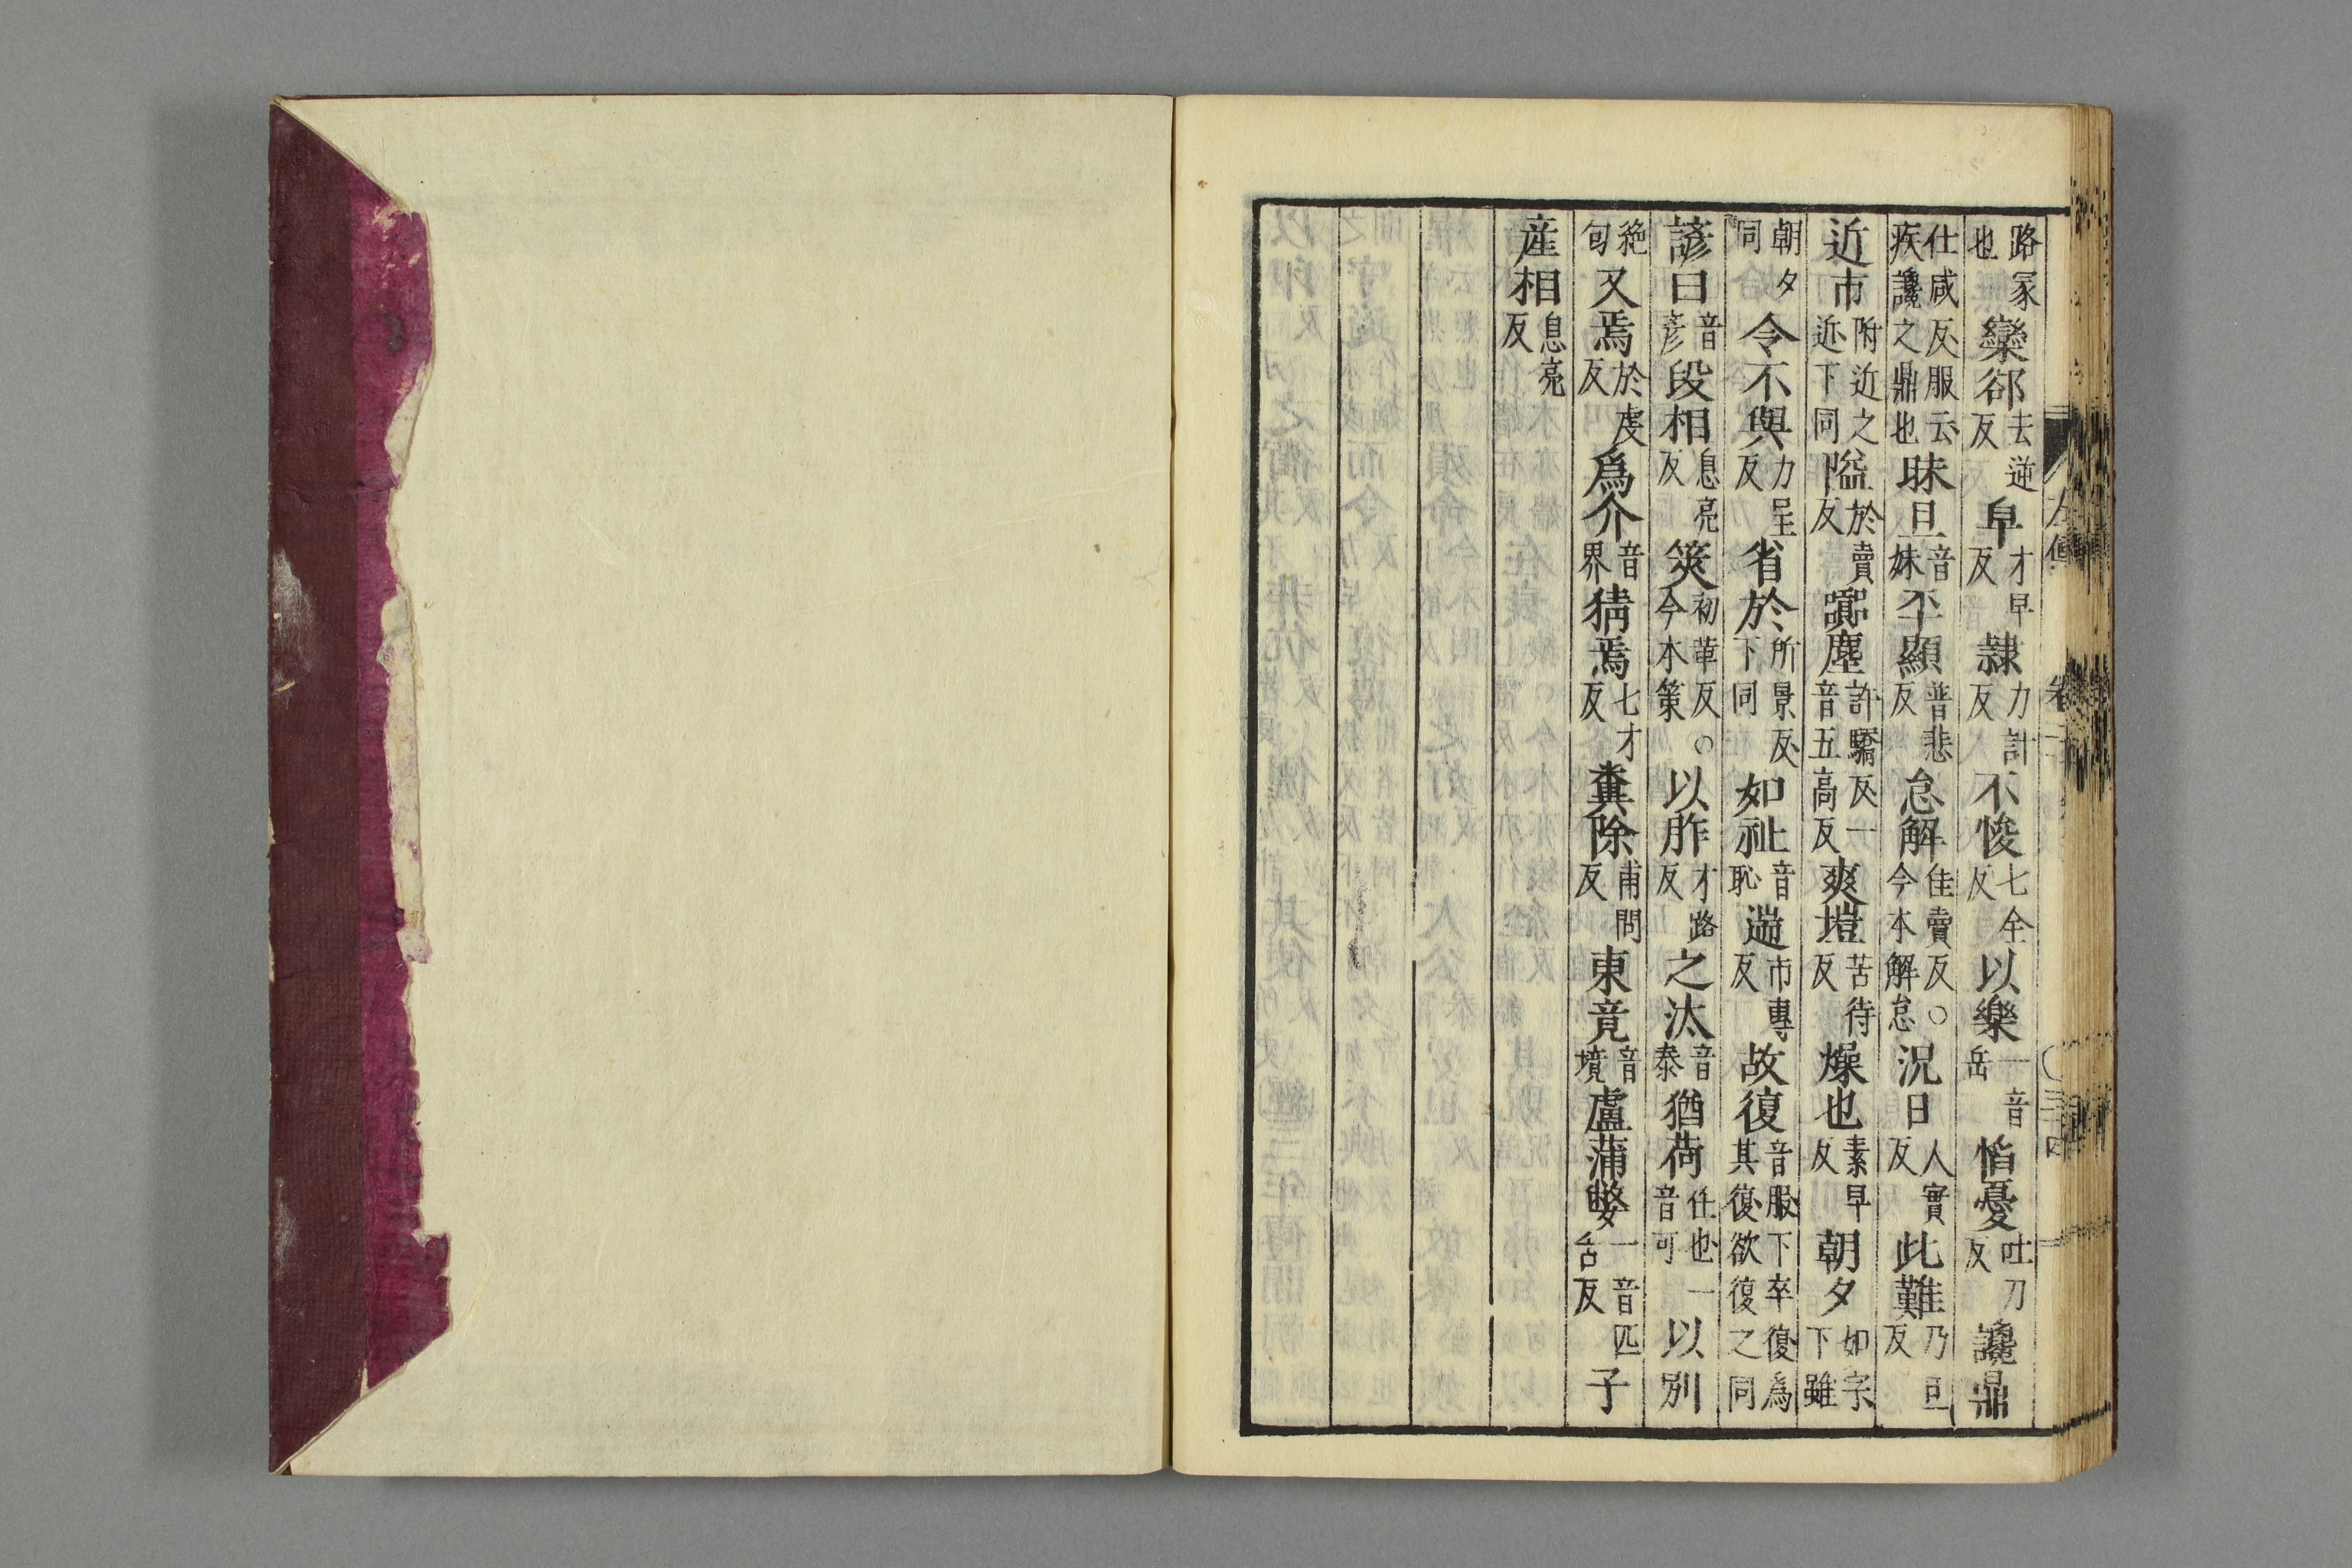 路冢也欒郤去逆反皁才早反隷力計反不悛七全反以樂一音岳慆憂吐刀反讒鼎
仕咸反服云疾讒之鼎也昧旦音妹丕顯普悲反怠解佳賣反○今本解怠況日人實反此難乃旦反
近市附近之近下同隘於賣反嚻塵許驕反一音五高反爽塏苦待反燥也素早反朝夕如字下雖
朝夕同令不與力呈反省於所景反下同如祉音恥遄市專反故復音服下卒復爲其復欲復之同
諺曰音彥段相息亮反筴初革反○今本策以胙才路反之汰音泰猶荷任也一音可以別
絕句又焉於虔反爲介音界猜焉七才反糞除甫問反東竟音境盧蒲嫳一音匹舌反子
産相息亮反
左傳 卷 三四